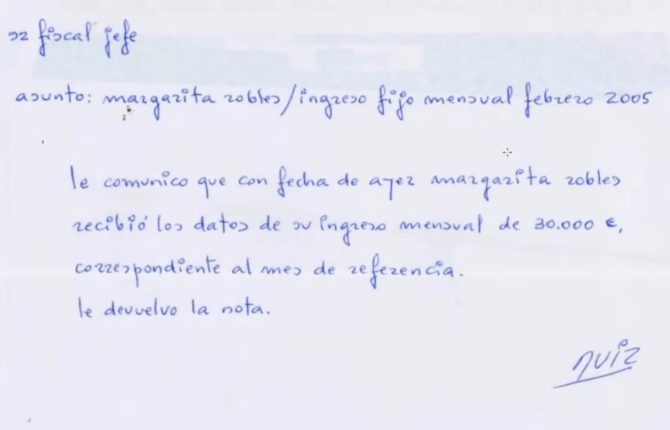 sr fiscal jefe
asunto: margarita robles/ingreso fijo mensual febrero 2005
le comunico que con fecha de ayer margarita robles
recibió los datos de su ingreso mensual de 30.000 €,
correspondiente al mes de referencia.
le devuelvo la nota.
ruiz